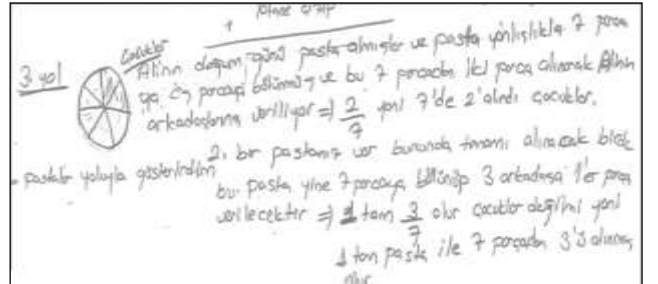 1
3 yol
Çocuklar
Alinin doğum günü pasta almışlar ve pasta yanlışlıkla 7 parça
parçaya bölünmüş ve bu 7 parçadan iki parça alınarak Alinin
arkadaşlarına veriliyor ⇒ 2/7 yani 7'de 2'alındı çocuklar.
- pastalar yoluyla gösterirdim
2. bir pastamız var bununda tamamı alınacak birde
bu pasta yine 7 parçaya bölünüp 3 arkadaşa 1'er parça
verilecektir ⇒ 1 tam 3/7 olur çocuklar değilmi yani
1 tam pasta ile 7 parçadan 3'ü alınmış
olur